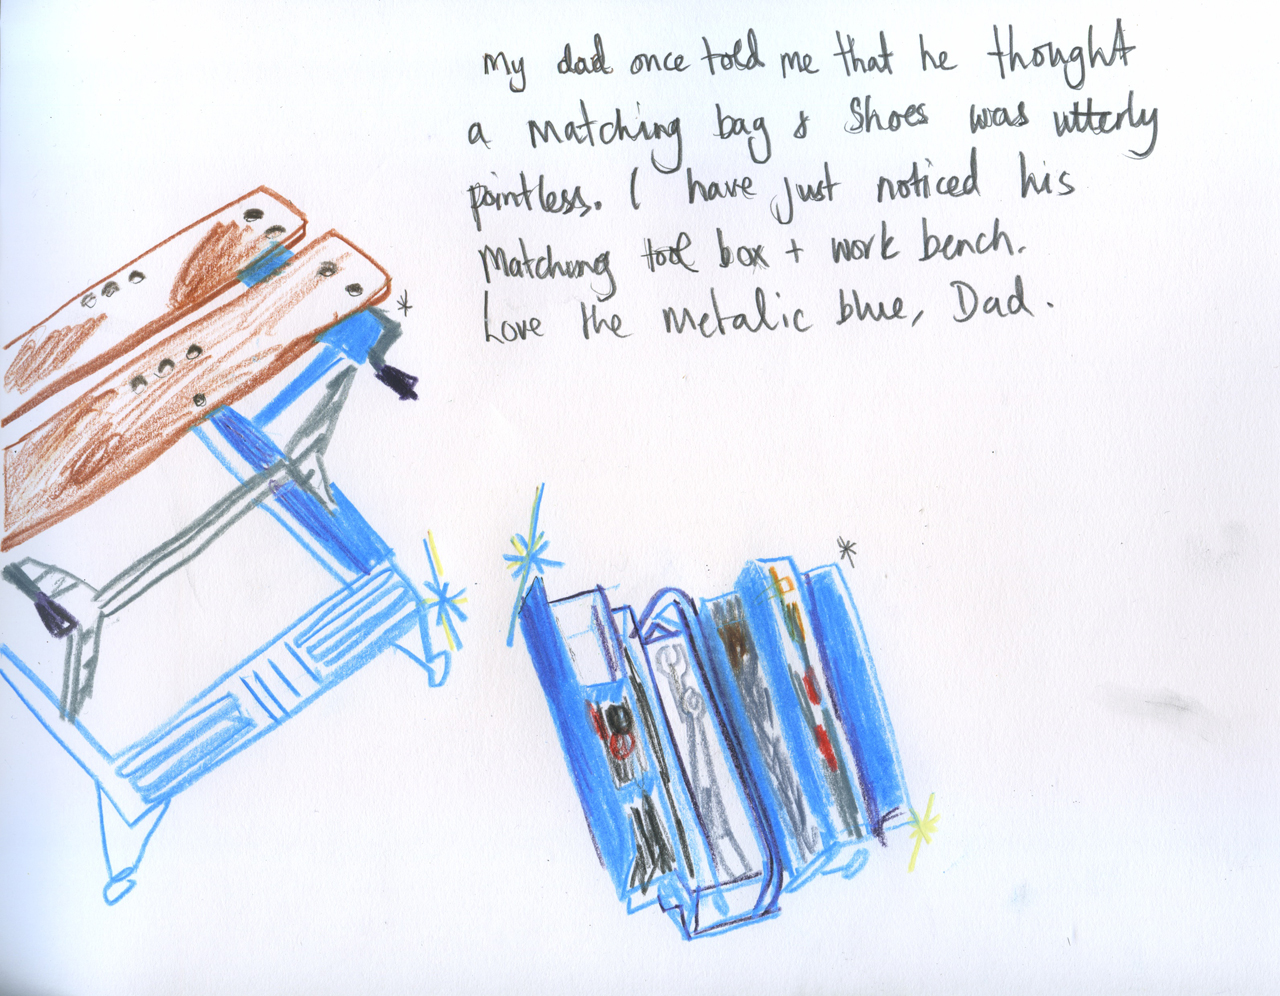 My dad once told me that he thought
a matching bag & shoes was utterly
pointless. I have just noticed his
Matching tool box + work bench.
Love the metalic blue, Dad.